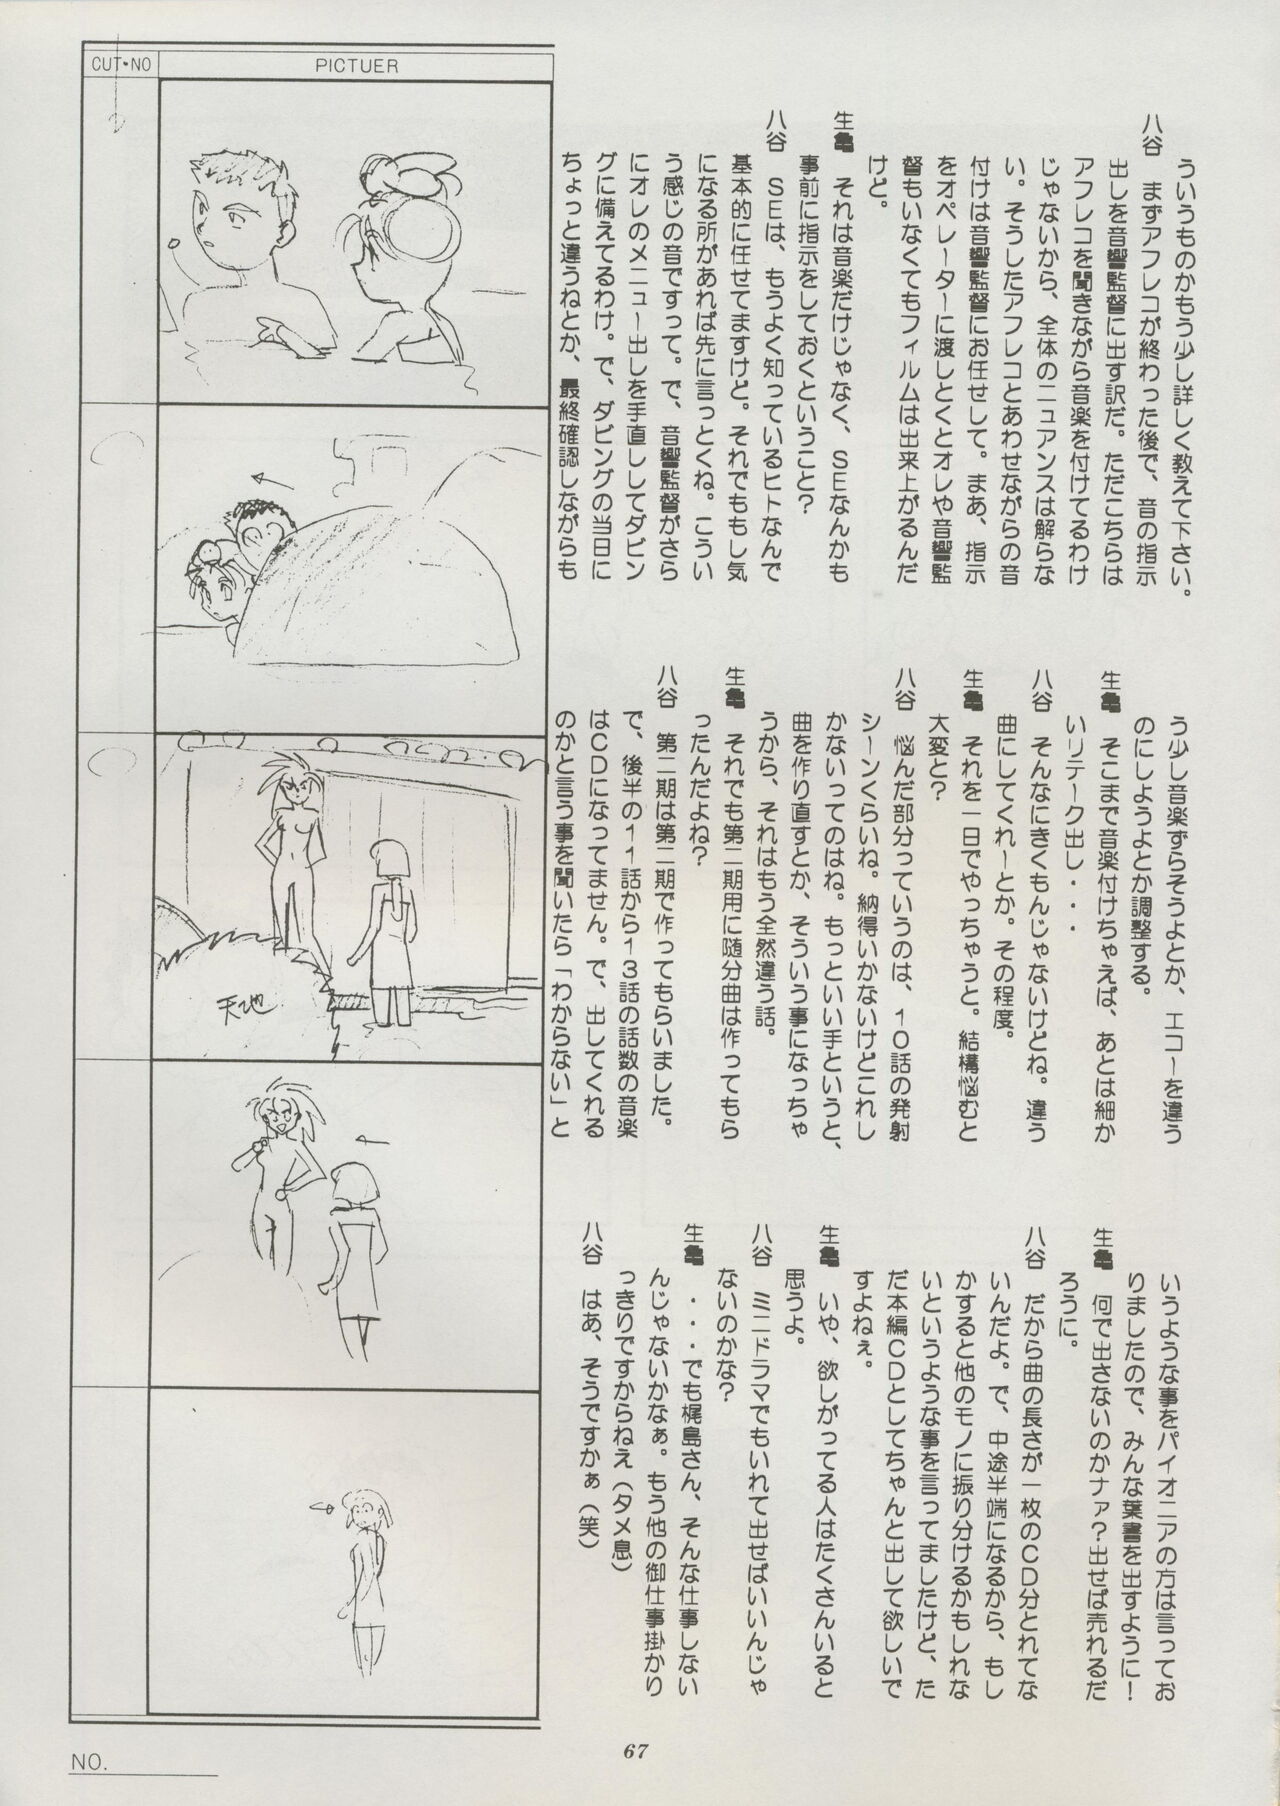 CUT・NO
PICTUER
ういうものかもう少し詳しく教えて下さい。
八谷　まずアフレコが終わった後で、音の指示
出しを音響監督に出す訳だ。ただこちらは
アフレコを聞きながら音楽を付けてるわけ
じゃないから、全体のニュアンスは解らな
い。そうしたアフレコとあわせながらの音
付けは音響監督にお任せして。まあ、指示
をオペレーターに渡しとくとオレや音響監
督もいなくてもフィルムは出来上がるんだ
けど。
生亀　それは音楽だけじゃなく、SEなんかも
事前に指示をしておくということ?
八谷　SEは、もうよく知っているヒトなんで
基本的に任せてますけど。それでももし気
になる所があれば先に言っとくね。こうい
う感じの音ですって。で、音響監督がさら
にオレのメニュー出しを手直ししてダビン
グに備えてるわけ。で、ダビングの当日に
ちょっと違うねとか、最終確認しながらも
う少し音楽ずらそうよとか、エコーを違う
のにしようよとか調整する。
生亀　そこまで音楽付けちゃえば、あとは細か
いリテーク出し・・・
八谷　そんなにきくもんじゃないけどね。違う
曲にしてくれーとか。その程度。
生亀　それを一日でやっちゃうと。結構悩むと
大変と?
八谷　悩んだ部分っていうのは、10話の発射
シーンくらいね。納得いかないけどこれし
かないってのはね。もっといい手というと、
曲を作り直すとか、そういう事になっちゃ
うから、それはもう全然違う話。
生亀　それでも第二期用に随分曲は作ってもら
ったんだよね?
八谷　第二期は第二期で作ってもらいました。
で、後半の11話から13話の話数の音楽
はCDになってません。で、出してくれる
のかと言う事を聞いたら「わからない」と
いうような事をパイオニアの方は言ってお
りましたので、みんな葉書を出すように!
生亀　何で出さないのかナァ?出せば売れるだ
ろうに。
八谷　だから曲の長さが一枚のCD分とれてな
いんだよ。で、中途半端になるから、もし
かすると他のモノに振り分けるかもしれな
いというような事を言ってましたけど、た
だ本編CDとしてちゃんと出して欲しいで
すよねぇ。
生亀　いや、欲しがってる人はたくさんいると
思うよ。
八谷　ミニドラマでもいれて出せばいいんじゃ
ないのかな?
生亀　・・・でも梶島さん、そんな仕事しない
んじゃないかなぁ。もう他の御仕事掛かり
っきりですからねえ(タメ息)
八谷　はあ、そうですかぁ(笑)
天地
NO.
67